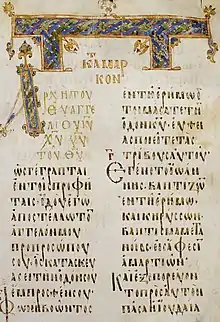 ΚΑΤΑ ΜΑΡ
ΚΟΝ
ΑΡΧΗ ΤΟΥ
ΕΥΑΓΓΕ
ΛΙΟΥ ΙΥ
ΧΥ ΥΙΟΥ
ΤΟΥ ΘΥ
ΩϹ ΓΕΓΡΑΠΤΑΙ
ΕΝ ΤΟΙϹ ΠΡΟΦΗ
ΤΑΙϹ ΙΔΟΥ ΕΓΩ
ΑΠΟϹΤΕΛΛΩ ΤΟΝ
ΑΓΓΕΛΟΝ ΜΟΥ
ΠΡΟ ΠΡΟϹΩΠΟΥ
ϹΟΥ ΟϹ ΚΑΤΑϹΚΕΥ
ΑϹΕΙ ΤΗΝ ΟΔΟΝ ϹΟΥ
ΕΜΠΡΟϹΘΕΝ ϹΟΥ
ΦΩΝΗ ΒΟΩΝΤΟϹ
ΕΝ ΤΗ ΕΡΗΜΩ Ε
ΤΟΙΜΑϹΑΤΕ ΤΗΝ
ΟΔΟΝ ΚΥ ΕΥΘΕΙ
ΑϹ ΠΟΙΕΙΤΕ ΤΑϹ
ΤΡΙΒΟΥϹ ΑΥΤΟΥ
ΕΓΕΝΕΤΟ ΙΩΑΝ
ΝΗϹ ΒΑΠΤΙΖΩΝ
ΕΝ ΤΗ ΕΡΗΜΩ
ΚΑΙ ΚΗΡΥϹϹΩΝ
ΒΑΠΤΙϹΜΑ ΜΕΤΑ
ΝΟΙΑϹ ΕΙϹ ΑΦΕϹΙΝ
ΑΜΑΡΤΙΩΝ
ΚΑΙ ΕΞΕΠΟΡΕΥΕ
ΤΟ ΠΡΟϹ ΑΥΤΟΝ
ΠΑϹΑ Η ΙΟΥΔΑΙΑ